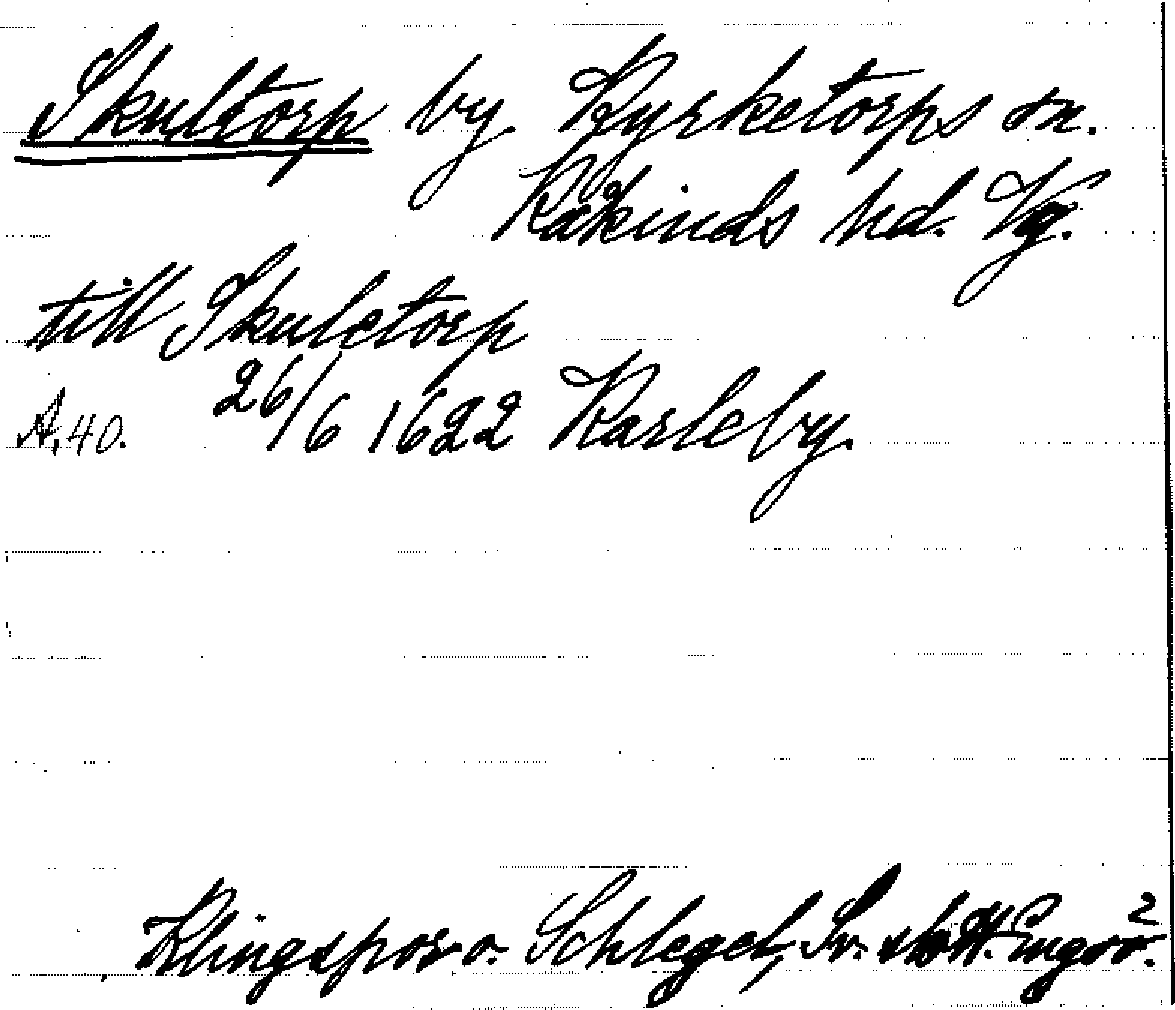 Skultorp by Kyrketorps sn.
Kåkinds hd. Vg.
till Skuletorp
A. 40. 26/6 1622 Karleby.
Klingspor o. Schlegel, Sv. slott. Engsö. 2